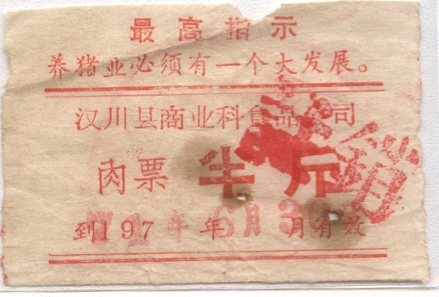 最高指示
养猪业必须有一个大发展。
汉川县商业科食品公司
肉票 半斤
到197 年 月有效
6月3
销